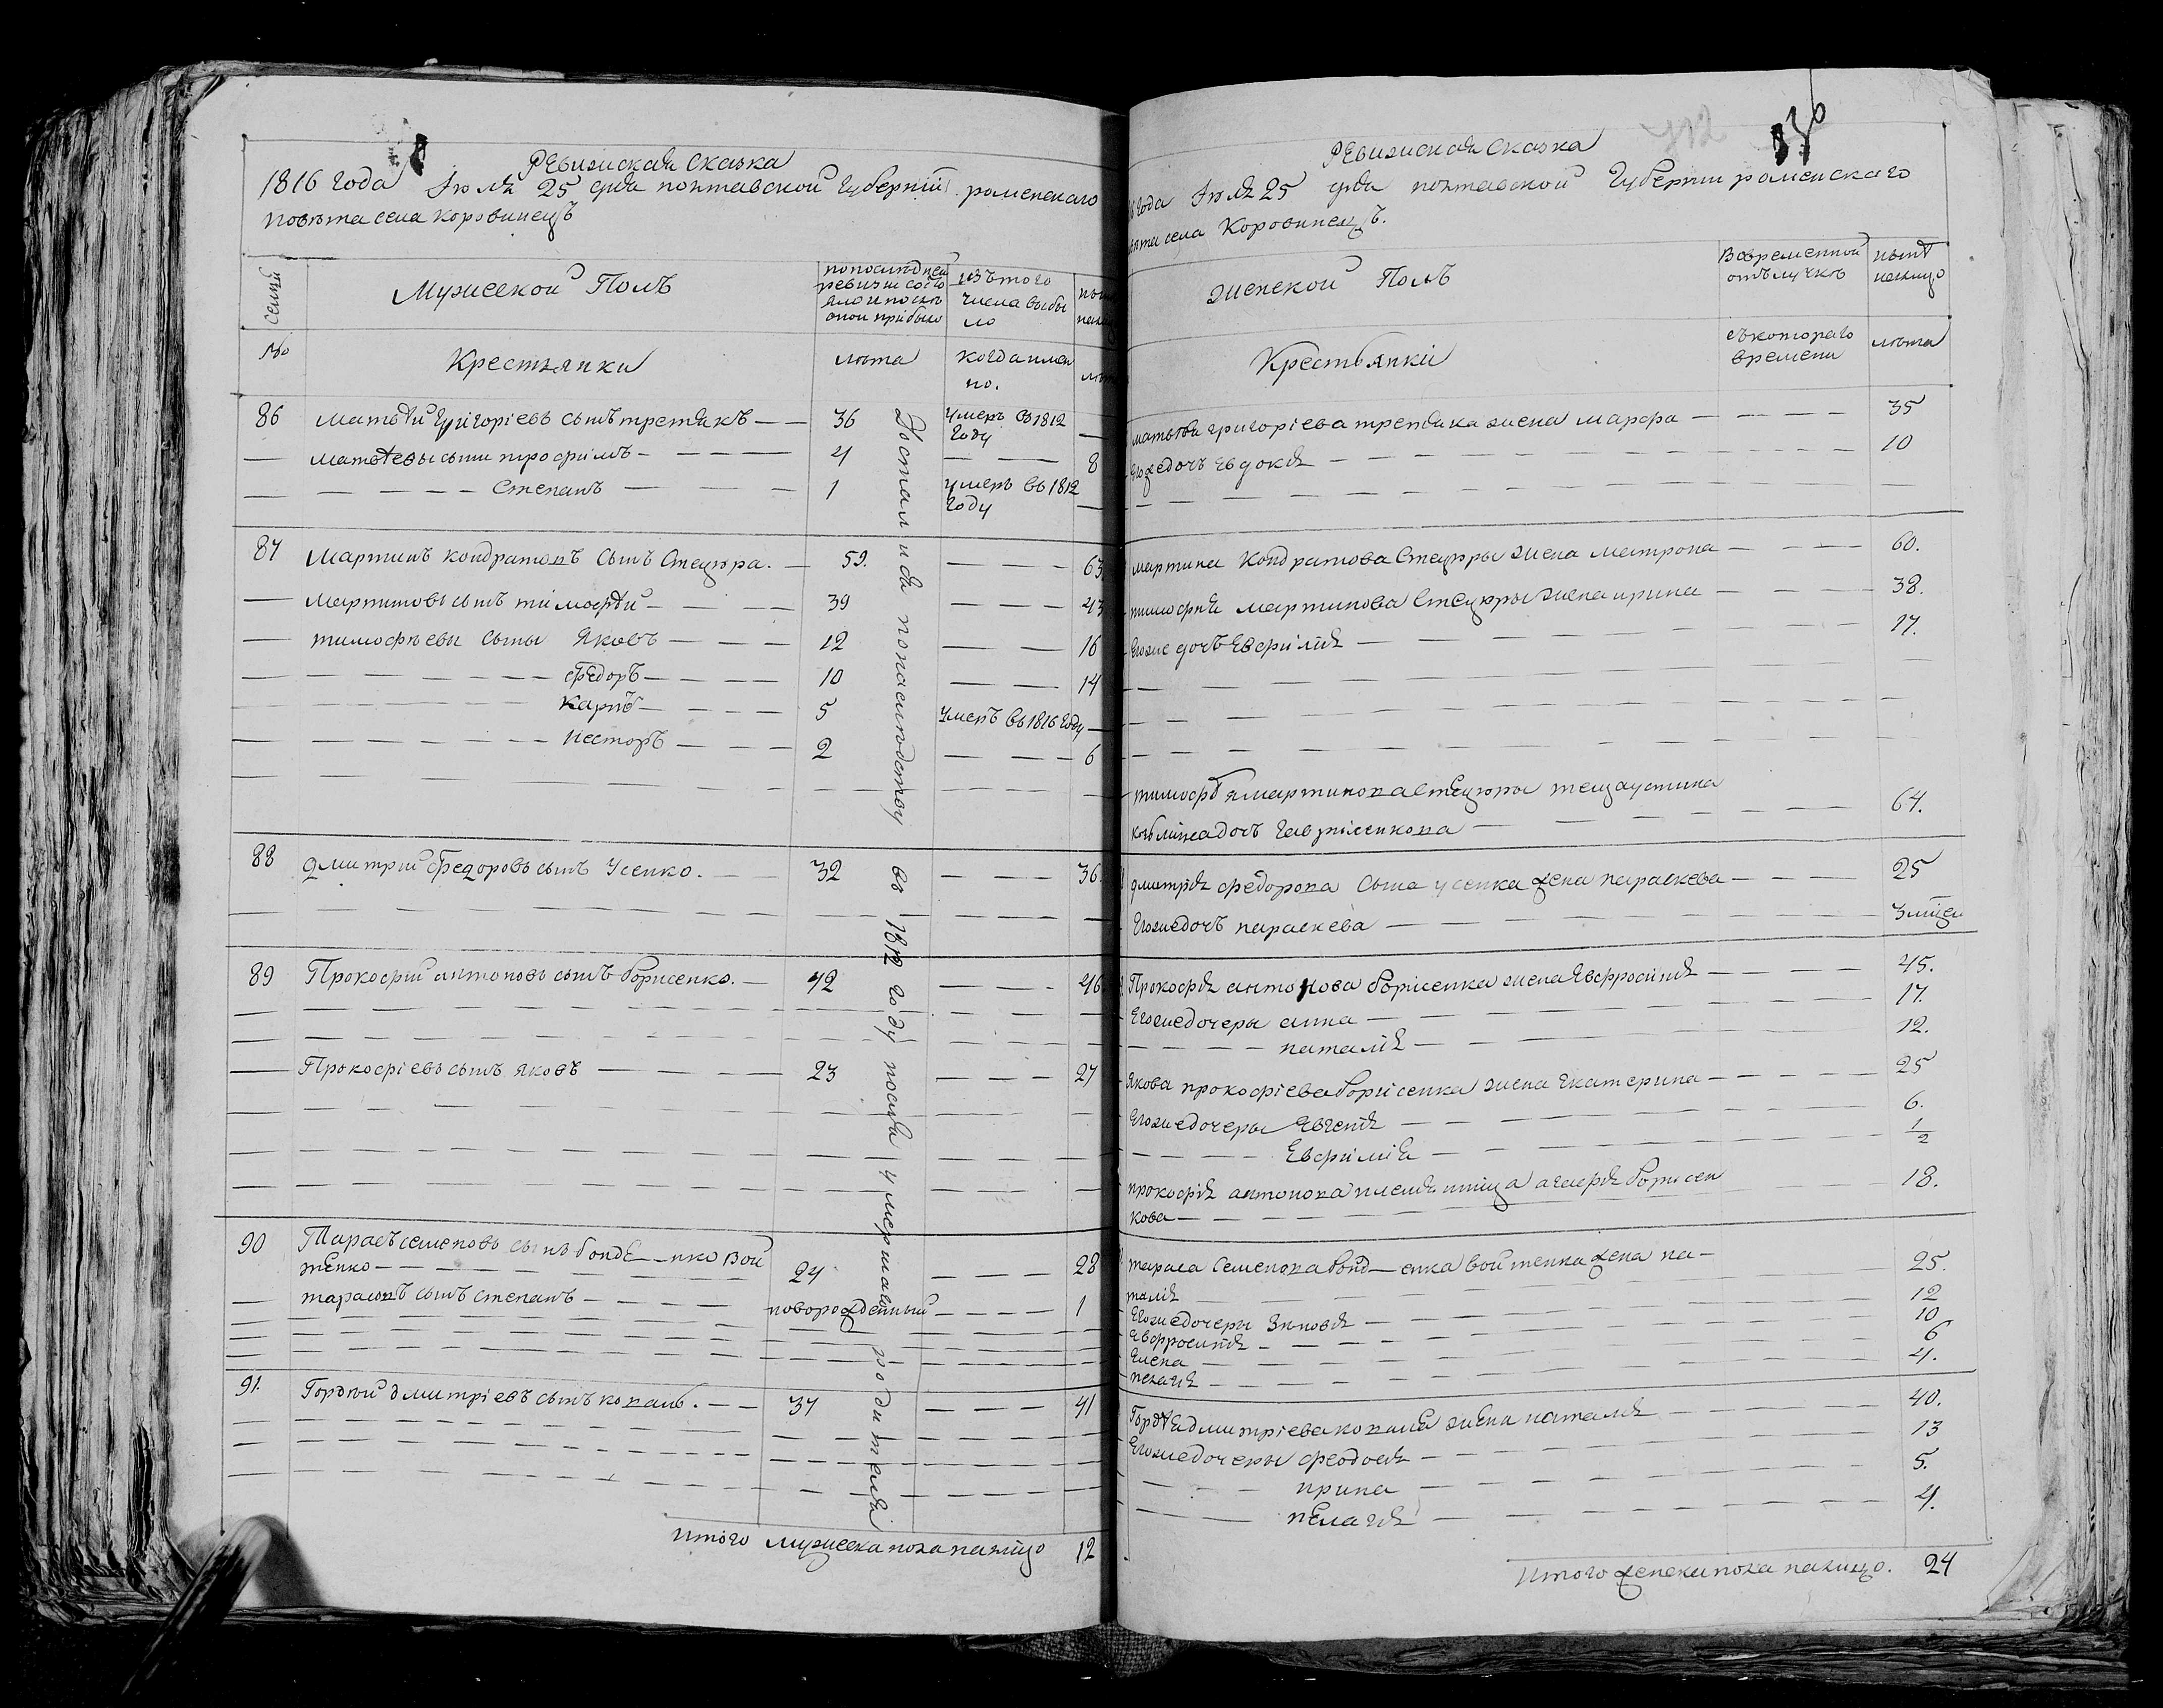 Ревизиская Сказка
1816 года Июля 25 дня полтавской губерніи роменскаго
повѣта села коровинецъ
семьи
Мужескои Полъ
попоследней ревизіи состояло и послѣ оной прибыло
изъ того числа выбыло
№
Крестьянки
лѣта
когда имянно.
86 матвѣй григоріевъ сынъ третякъ 36 умеръ въ 1812 году
матвѣевы сыни трофимъ 4 8
Степанъ 1 умеръ въ 1812 году
87 Мартинъ кондратовъ сынъ Стецюра. 59. 63
Мартиновъ сынъ тимофѣй 39 43
тимофѣевы сыны яковъ 12 16
федоръ 10 14
карпъ 5 умеръ въ 1816 году
несторъ 2 6
88 дмитрий федоровъ сынъ Усенко. 32 36.
89 Прокофій антоновъ сынъ борисенко. 42 46
Прокофіевъ сынъ яковъ 23 27
90 Тарасъ семеновъ сынъ бонде-нко вой
тенко 24 28
тарасовъ сынъ степанъ новорожденный 1
91. Гордѣй дмитріевъ сынъ коваль. 37 41
Достались по наследству въ 1812 году послѣ умершаго родителя
итого мужеска пола налицо 12
412
Ревизиская Сказка
года Июля 25 дня полтавской губерніи роменскаго
села Коровинецъ.
женской Полъ
Во временной отълучкѣ
нынѣ налицо
Крестьянкіи
съ котораго времени
лѣта
матвѣя григоріева третяка жена марфа 35
Его же дочь евдокія 10
мартина Кондратова Стецюры жена матрона 60.
тимофѣя мартинова Стецюры жена ирина 38.
Его же дочь Евфимія 17.
тимофѣя мартинова стецюры теща устина
дочь гавриленкова 64.
дмитрія федорова сына усенка жена параскева 25
Его же дочь параскева 3 мѣсеци
Прокофія антонова борисенка жена Евфросинія 45.
Его же дочеры анна 17.
наталія 12.
якова прокофіева борисенка жена Екатерина 25
Его же дочеры Евгенія 6.
Евфимія 1/2
прокофія антонова племянница агафія борисен
кова 18.
тараса семенова бонд-енка войтенка жена на-
талія 25.
Его же дочеры Зиновія 12
Евфросинія 10
Елена 6
пелагія 4.
Гордѣя дмитріева коваля жена наталія 40.
Его же дочеры феодосія 13
ирина 5.
пелагія 4.
итого женска пола налицо. 24